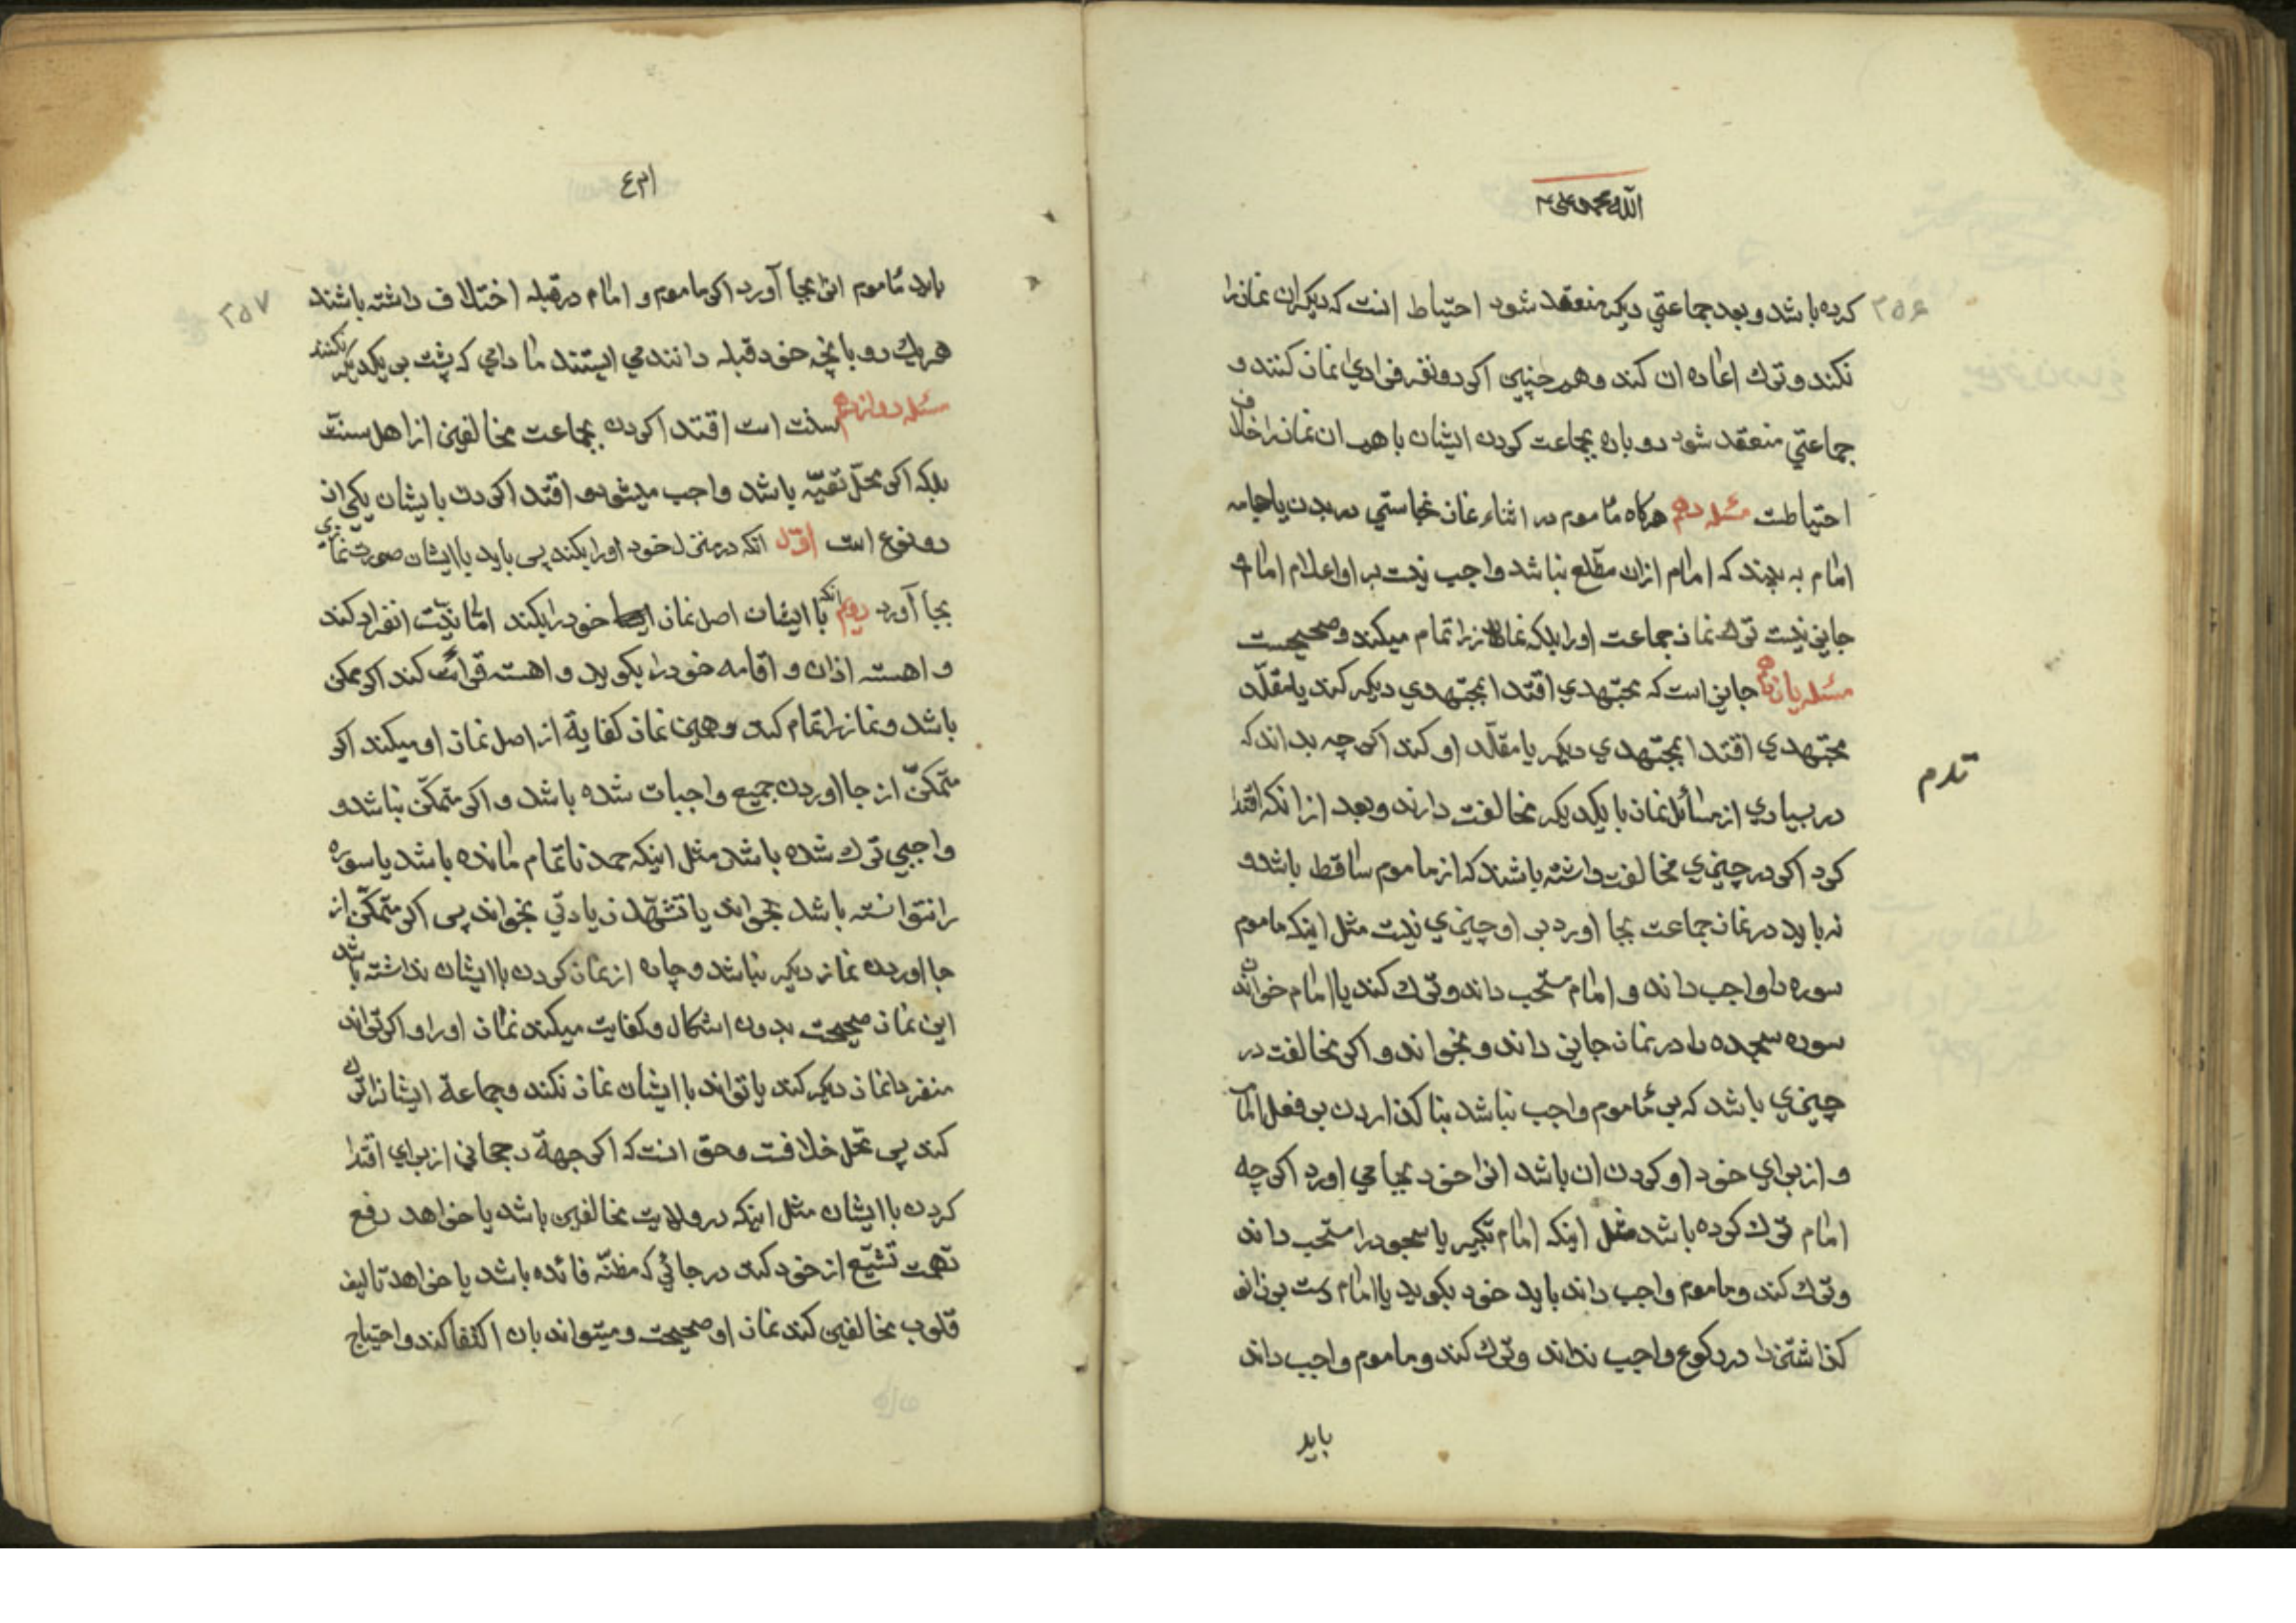 الله محمد علی
۲۵۶
کرده باشد و بعد جماعتي دیکر منعقد شود احتیاط انست که دیکر ان نمازرا
نکند و ترك اعاده ان کند و همچنین اکر دو نفر فرادي نماز کنند و
جماعتي منعقد شود دوباره بجماعت کردن ایشان با هم ان نمازرا خلاف
احتیاطست مسئله دهم هرکاه مأموم در اثناء نماز نجاستي در بدن یا جامه
امام به بیند که امام ازان مطّلع نباشد واجب نیست بر او اعلام امام و
جایز نیست ترك نماز جماعت اورا بلکه نمازرا تمام میکند و صحیحست
مسئله یازدهم جایز است که مجتهدي اقتدا بمجتهدي دیکر کند یا مقلّد
مجتهدي اقتدا بمجتهدي دیکر یا مقلّد او کند اکر چه بداند که
در بسیاري از مسائل نماز با یکدیکر مخالفت دارند و بعد از انکه اقتدا
کرد اکر در چیزي مخالفت داشته باشند که از ماموم ساقط باشد و
نه باید در نماز جماعت بجا اورد بر او چیزي نیست مثل اینکه ماموم
سوره را واجب داند و امام مستحب داند و ترك کند یا امام خواندن
سوره سجده را در نماز جایز داند و بخواند و اکر مخالفت در
چیزي باشد که بر مأموم واجب نباشد بنا کذاردن بر فعل امام
و از براي خود او کردن ان باشد انرا خود بجا مي اورد اکر چه
امام ترك کرده باشد مثل اینکه امام تکبیر یا سجود را مستحب داند
و ترك کند و ماموم واجب داند باید خود بکوید یا امام دست بر زانو
کذاشتن را در رکوع واجب نداند و ترك کند و ماموم واجب داند
باید
۲۵۷
باید مأموم انرا بجا آورد اکر ماموم و امام در قبله اختلاف داشته باشند
هر یك رو بانچه خود قبله دانند مي ایستند ما دامي که پشت بر یکدیکر نکنند
مسئله دوازدهم سنت است اقتدا کردن بجماعت مخالفین از اهل سنّت
بلکه اکر محلّ تقیّه باشد واجب میشود و اقتدا کردن بایشان یکي از
دو نوع است اوّل انکه در منزل خود اورا بکند پس باید با ایشان صورت نمازي
بجا آورد دویم انکه با ایشان اصل نماز خود را بکند امّا نیّت انفراد کند
و اهسته اذان و اقامه خود را بکوید و اهسته قرائت کند اکر ممکن
باشد و نمازرا تمام کند و همین نماز کفایة از اصل نماز او میکند اکر
متمکّن از جا اوردن جمیع واجبات شده باشد و اکر متمکّن نباشد و
واجبي ترك شده باشد مثل اینکه حمد ناتمام مانده باشد یا سوره
را نتوانسته باشد بخواند یا تشهّد زیادتي بخواند پس اکر متمکّن از
جا اوردن نماز دیکر نباشد و چاره از نماز کردن با ایشان نداشته باشد
این نماز صحیحست بدون اشکال و کفایت میکند نماز اورا و اکر تواند
منفردا نماز دیکر کند یا تواند با ایشان نماز نکند و جماعة ایشانرا ترك
کند پس محل خلافست و حق انست که اکر جهة رجحاني از براي اقتدا
کردن با ایشان مثل اینکه در ولایت مخالفین باشد یا خواهد رفع
تهمت تشیّع از خود کند در جائي که مظنّه فائده باشد یا خواهد تالیف
قلوب مخالفین کند نماز او صحیحست و میتواند بان اکتفا کند و احتیاج